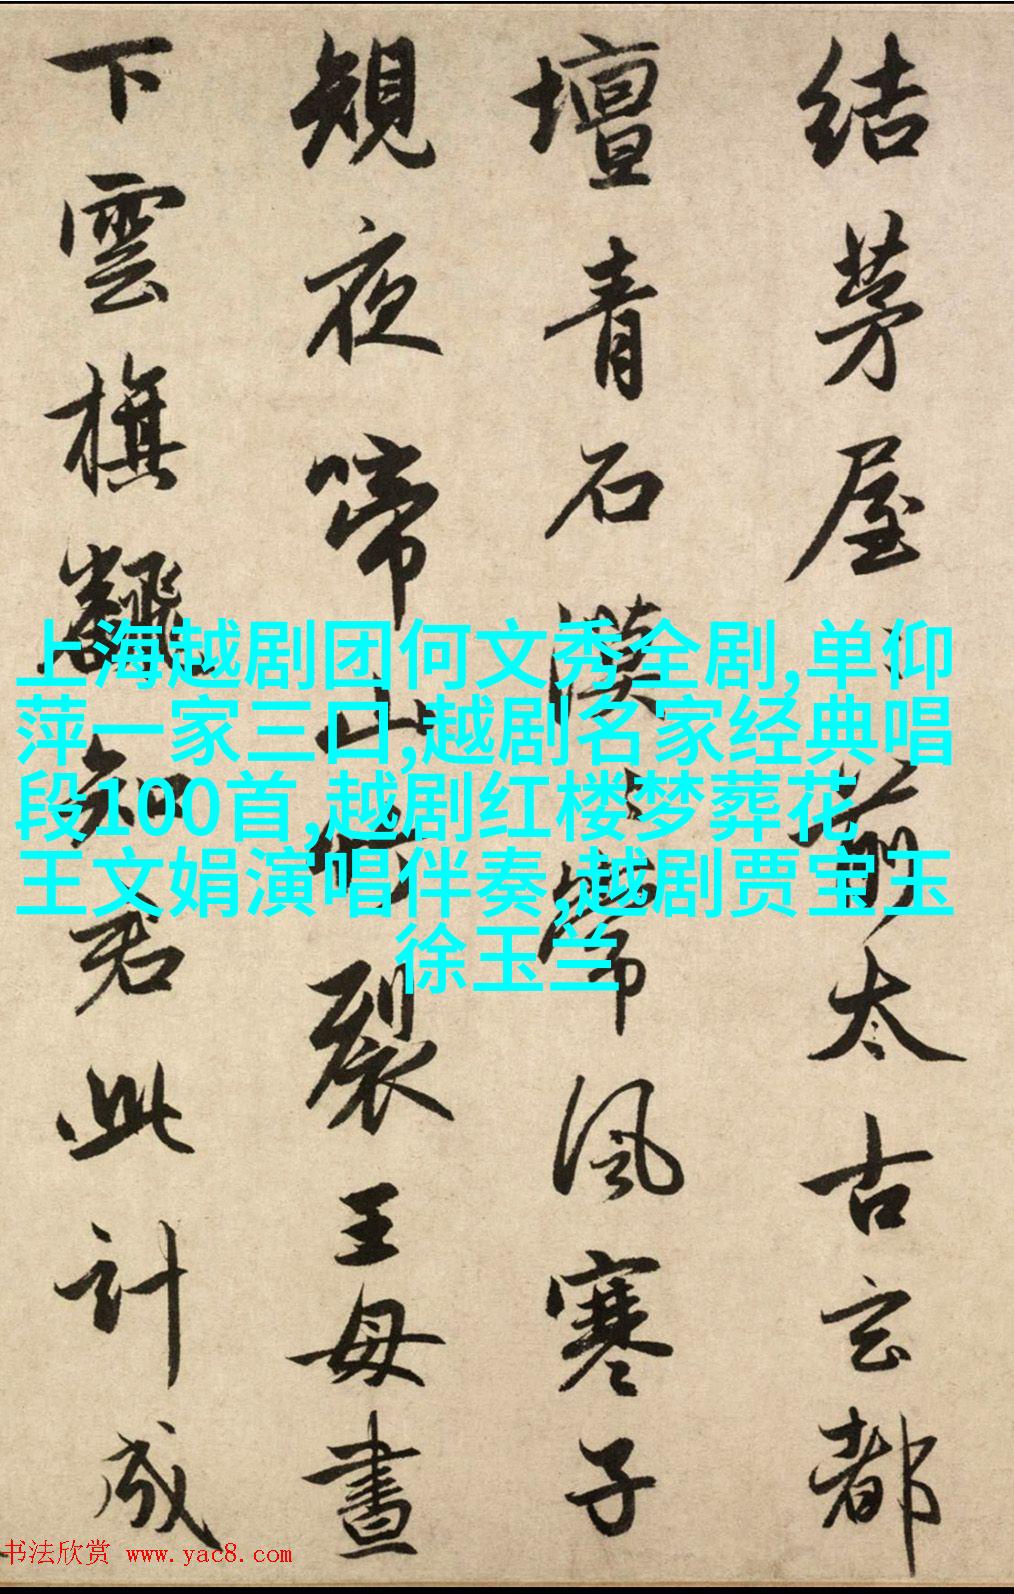 結茅屋〻前太古玄都
壇青石漠〻常風寒子
規夜啼山竹裂王母晝
下雲旗翻知君此計成
上海越剧团何文秀全剧,单仰
萍一家三口,越剧名家经典唱
段100首,越剧红楼梦葬花
王文娟演唱伴奏,越剧贾宝玉
徐玉兰
书法欣赏 www.yac8.com